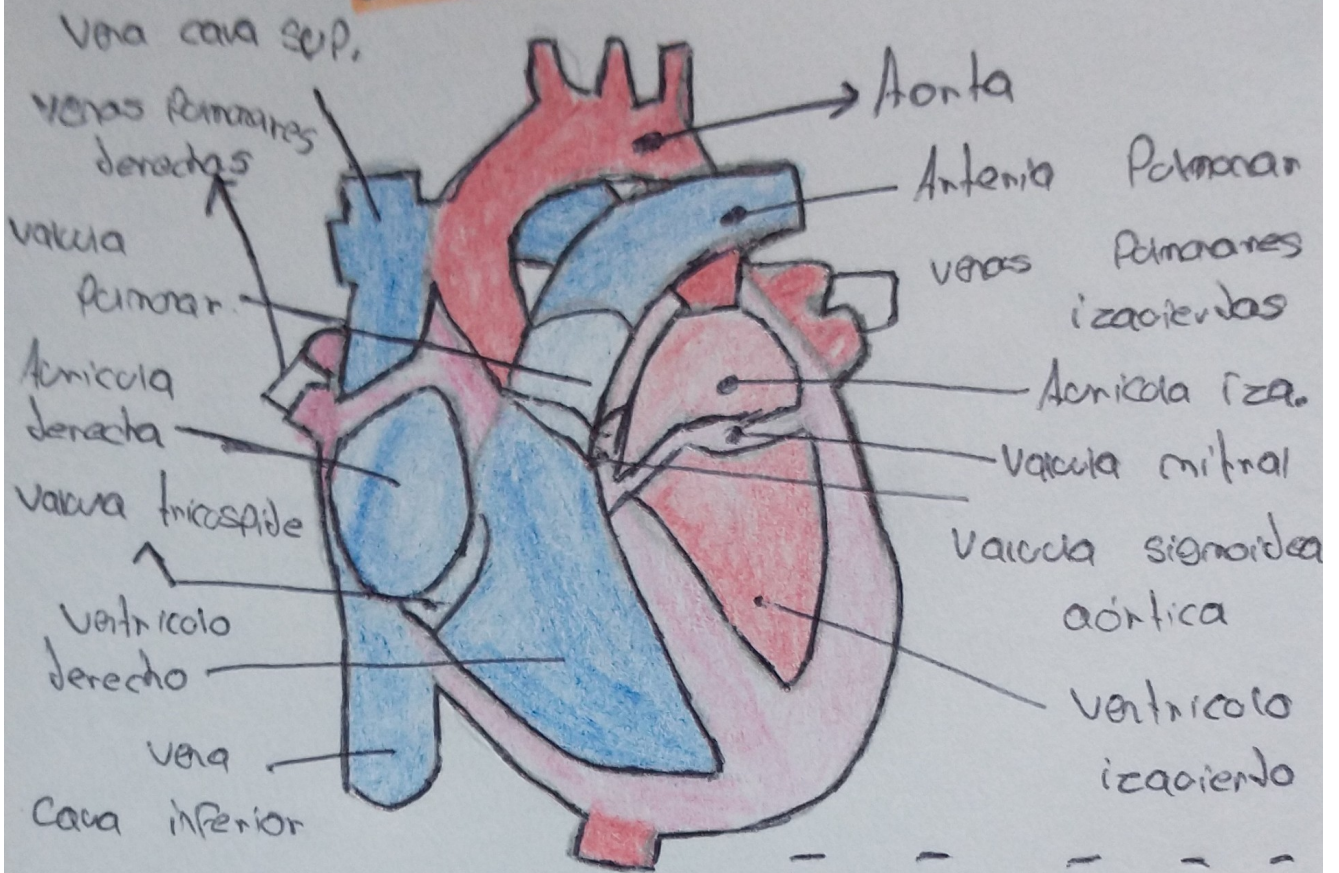 Vena cava sup.
venas Pulmonares
derechas
valvula
Pulmonar.
Auricula
derecha
valvula tricuspide
ventriculo
derecho
vena
cava inferior
Aorta
Arteria Pulmonar
venas Pulmonares
izquierdas
Auricula izq.
Valvula mitral
Valvula sigmoidea
aórtica
ventriculo
izquierdo